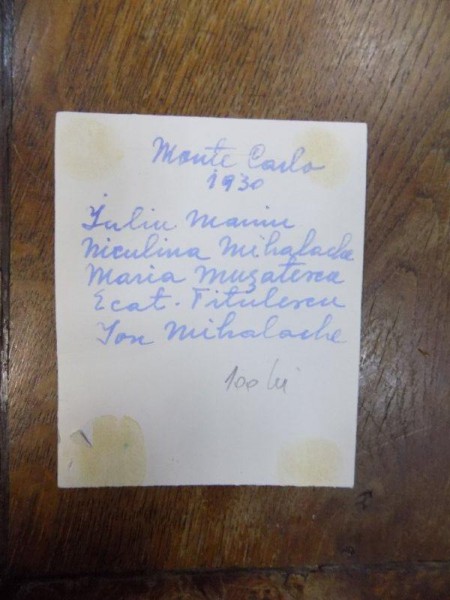 Monte Carlo
1930
Iuliu Maniu
Niculina Mihalache
Maria Mușatescu
Ecat. Titulescu
Ion Mihalache
100 lei